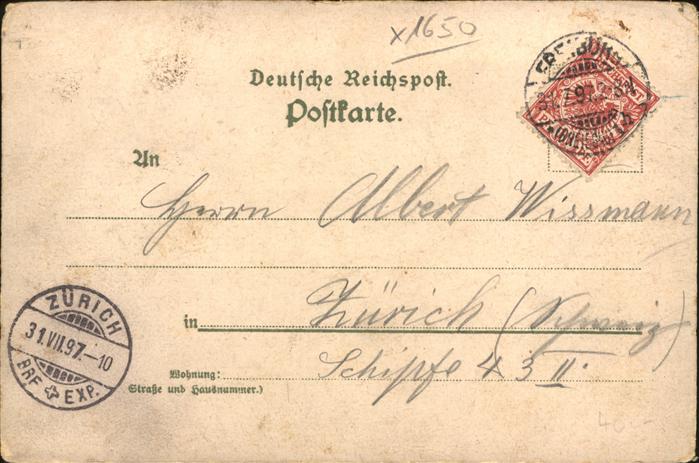 x1650
Deutsche Reichspost.
Postkarte.
An
Herrn Albert Wissmann
in Zürich (Schweiz)
Wohnung: Schipfe 43 II.
(Straße und Hausnummer.)
ZÜRICH
31.VII.97.-10
BRF. EXP.
40.-